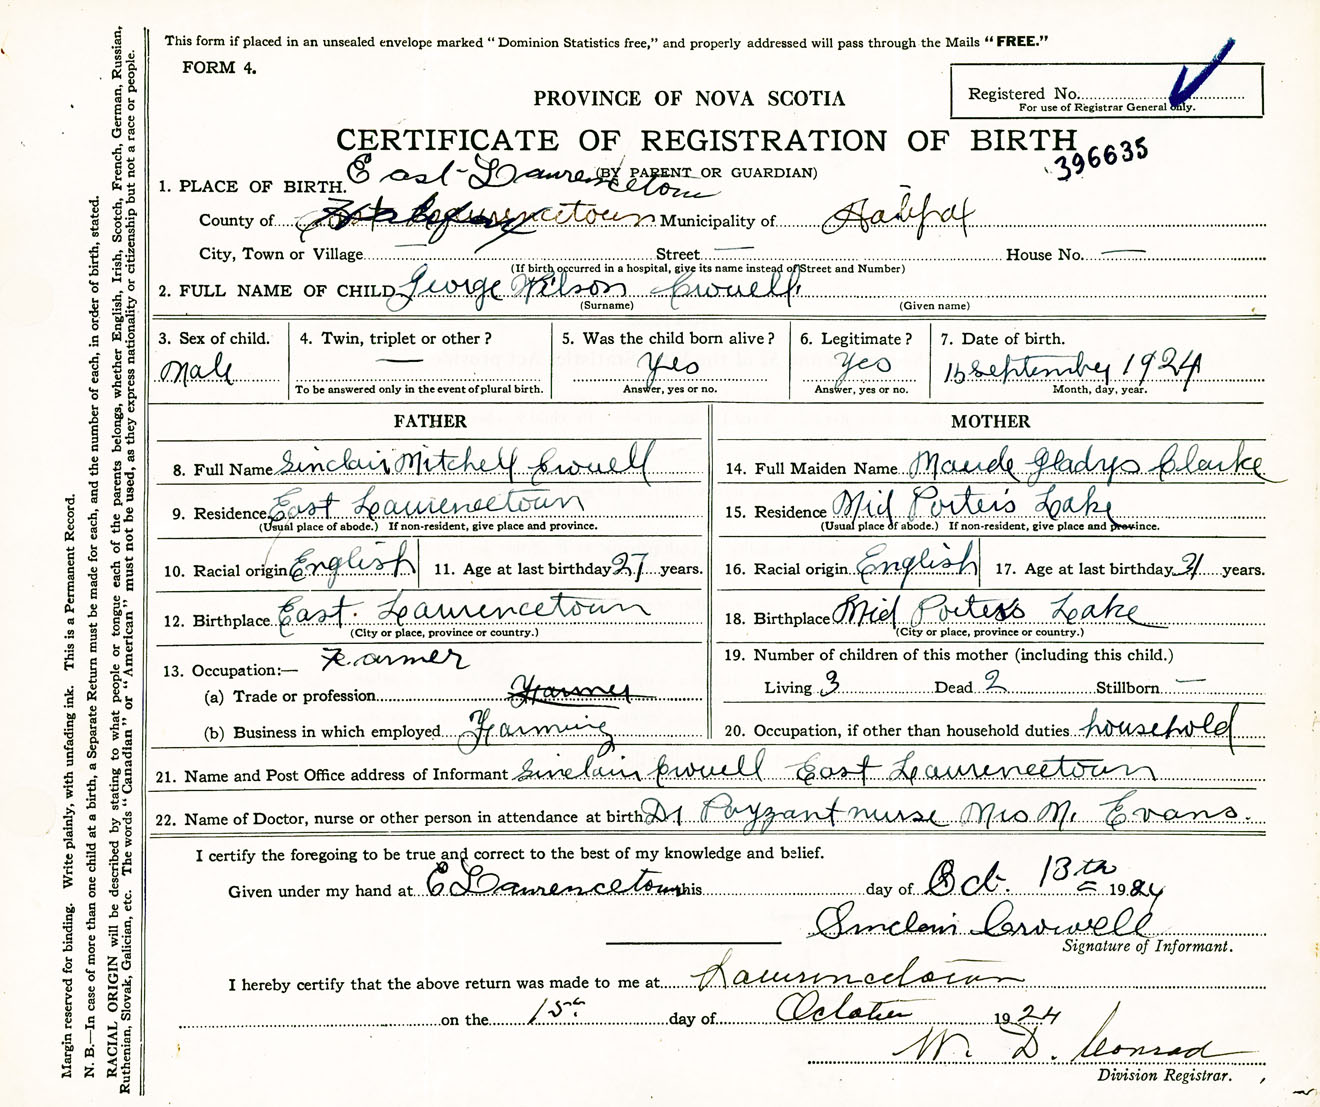 This form if placed in an unsealed envelope marked "Dominion Statistics free," and properly addressed will pass through the Mails "FREE."
FORM 4.
Registered No.
For use of Registrar General only.
PROVINCE OF NOVA SCOTIA
CERTIFICATE OF REGISTRATION OF BIRTH
396635
(BY PARENT OR GUARDIAN)
1. PLACE OF BIRTH. East-Lawrencetown
County of Lawrencetown Municipality of Halifax
City, Town or Village — Street — House No. —
(If birth occurred in a hospital, give its name instead of Street and Number)
2. FULL NAME OF CHILD George Wilson Crowell
(Surname) (Given name)
3. Sex of child. 4. Twin, triplet or other? 5. Was the child born alive? 6. Legitimate? 7. Date of birth.
Male — Yes Yes 15 September 1924
To be answered only in the event of plural birth. Answer, yes or no. Answer, yes or no. Month, day, year.
FATHER MOTHER
8. Full Name Sinclair Mitchell Crowell 14. Full Maiden Name Maude Gladys Clarke
9. Residence East Lawrencetown 15. Residence Mid Porters Lake
(Usual place of abode.) If non-resident, give place and province. (Usual place of abode.) If non-resident, give place and province.
10. Racial origin English 11. Age at last birthday 27 years. 16. Racial origin English 17. Age at last birthday years.
12. Birthplace East Lawrencetown 18. Birthplace Mid Porters Lake
(City or place, province or country.) (City or place, province or country.)
13. Occupation:— Farmer 19. Number of children of this mother (including this child.)
(a) Trade or profession Farmer Living 3 Dead 2 Stillborn —
(b) Business in which employed Farming 20. Occupation, if other than household duties household
21. Name and Post Office address of Informant Sinclair Crowell East Lawrencetown
22. Name of Doctor, nurse or other person in attendance at birth Dr Payzant nurse Mrs M. Evans.
I certify the foregoing to be true and correct to the best of my knowledge and belief.
Given under my hand at E Lawrencetown this day of Oct. 13th 1924
Sinclair Crowell
Signature of Informant.
I hereby certify that the above return was made to me at Lawrencetown
on the 15th day of October 1924
W. D. Conrad
Division Registrar.
Margin reserved for binding. Write plainly, with unfading ink. This is a Permanent Record.
N. B.—In case of more than one child at a birth, a Separate Return must be made for each, and the number of each, in order of birth, stated.
RACIAL ORIGIN will be described by stating to what people or tongue each of the parents belongs, whether English, Irish, Scotch, French, German, Russian,
Ruthenian, Slovak, Galician, etc. The words "Canadian" or "American" must not be used, as they express nationality or citizenship but not a race or people.